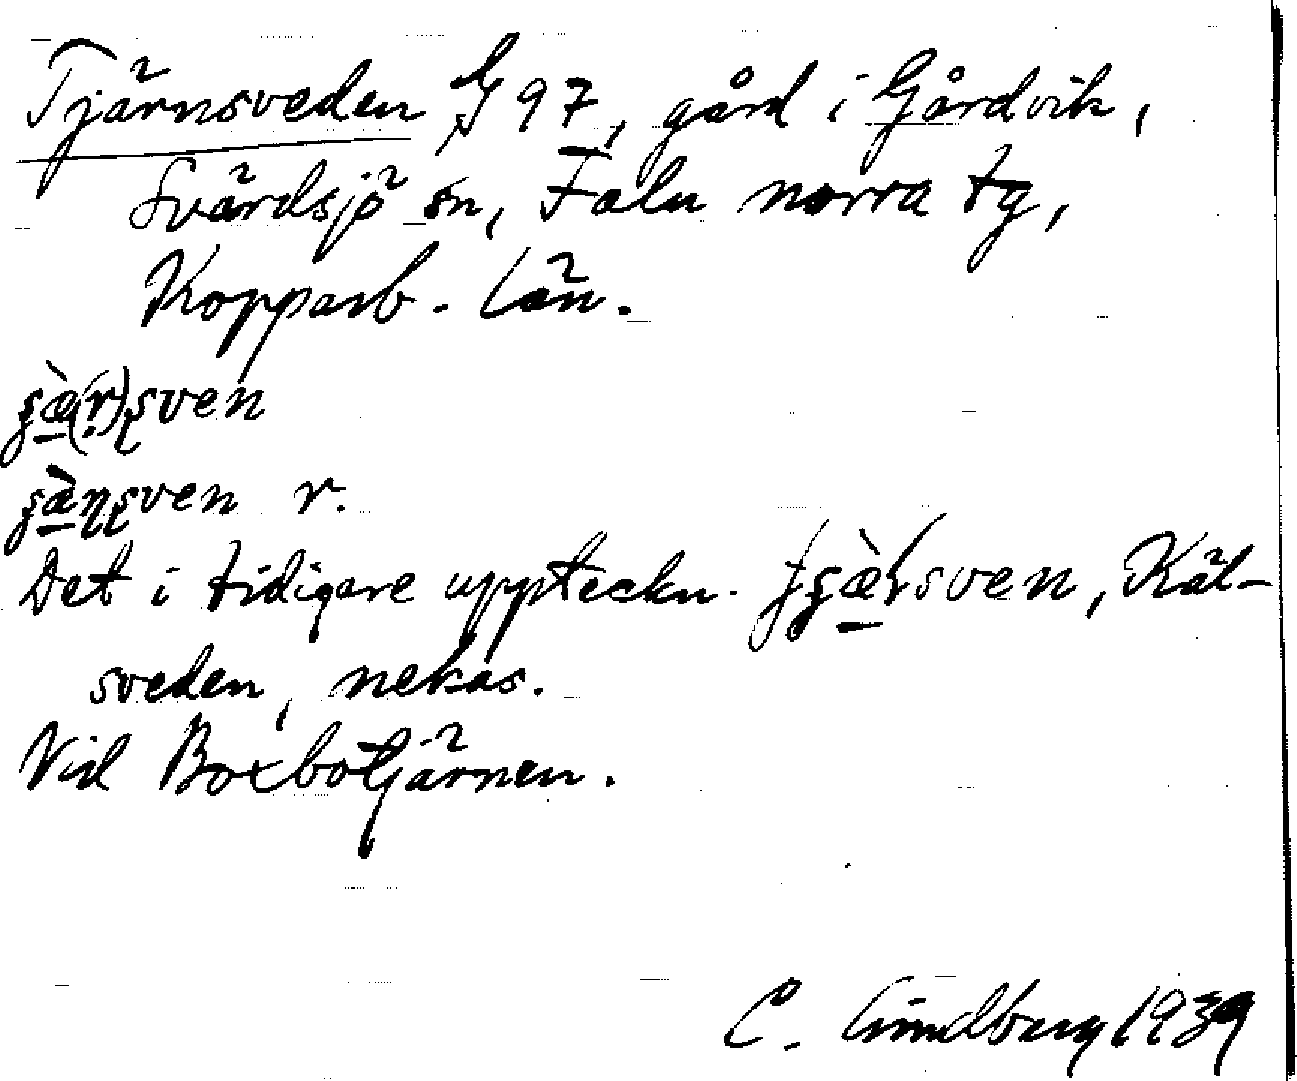 Tjärnsveden G 97, gård i Gårdvik,
Svärdsjö sn, Falu norra tg,
Kopparb. län.
ʂæ̀(r)ʂven
ʂæ̀ɳʂven r.
Det i tidigare uppteckn. ʂæ̀lsven, Käl-
sveden, nekas.
Vid Boxbotjärnen.
C. Lindberg 1939